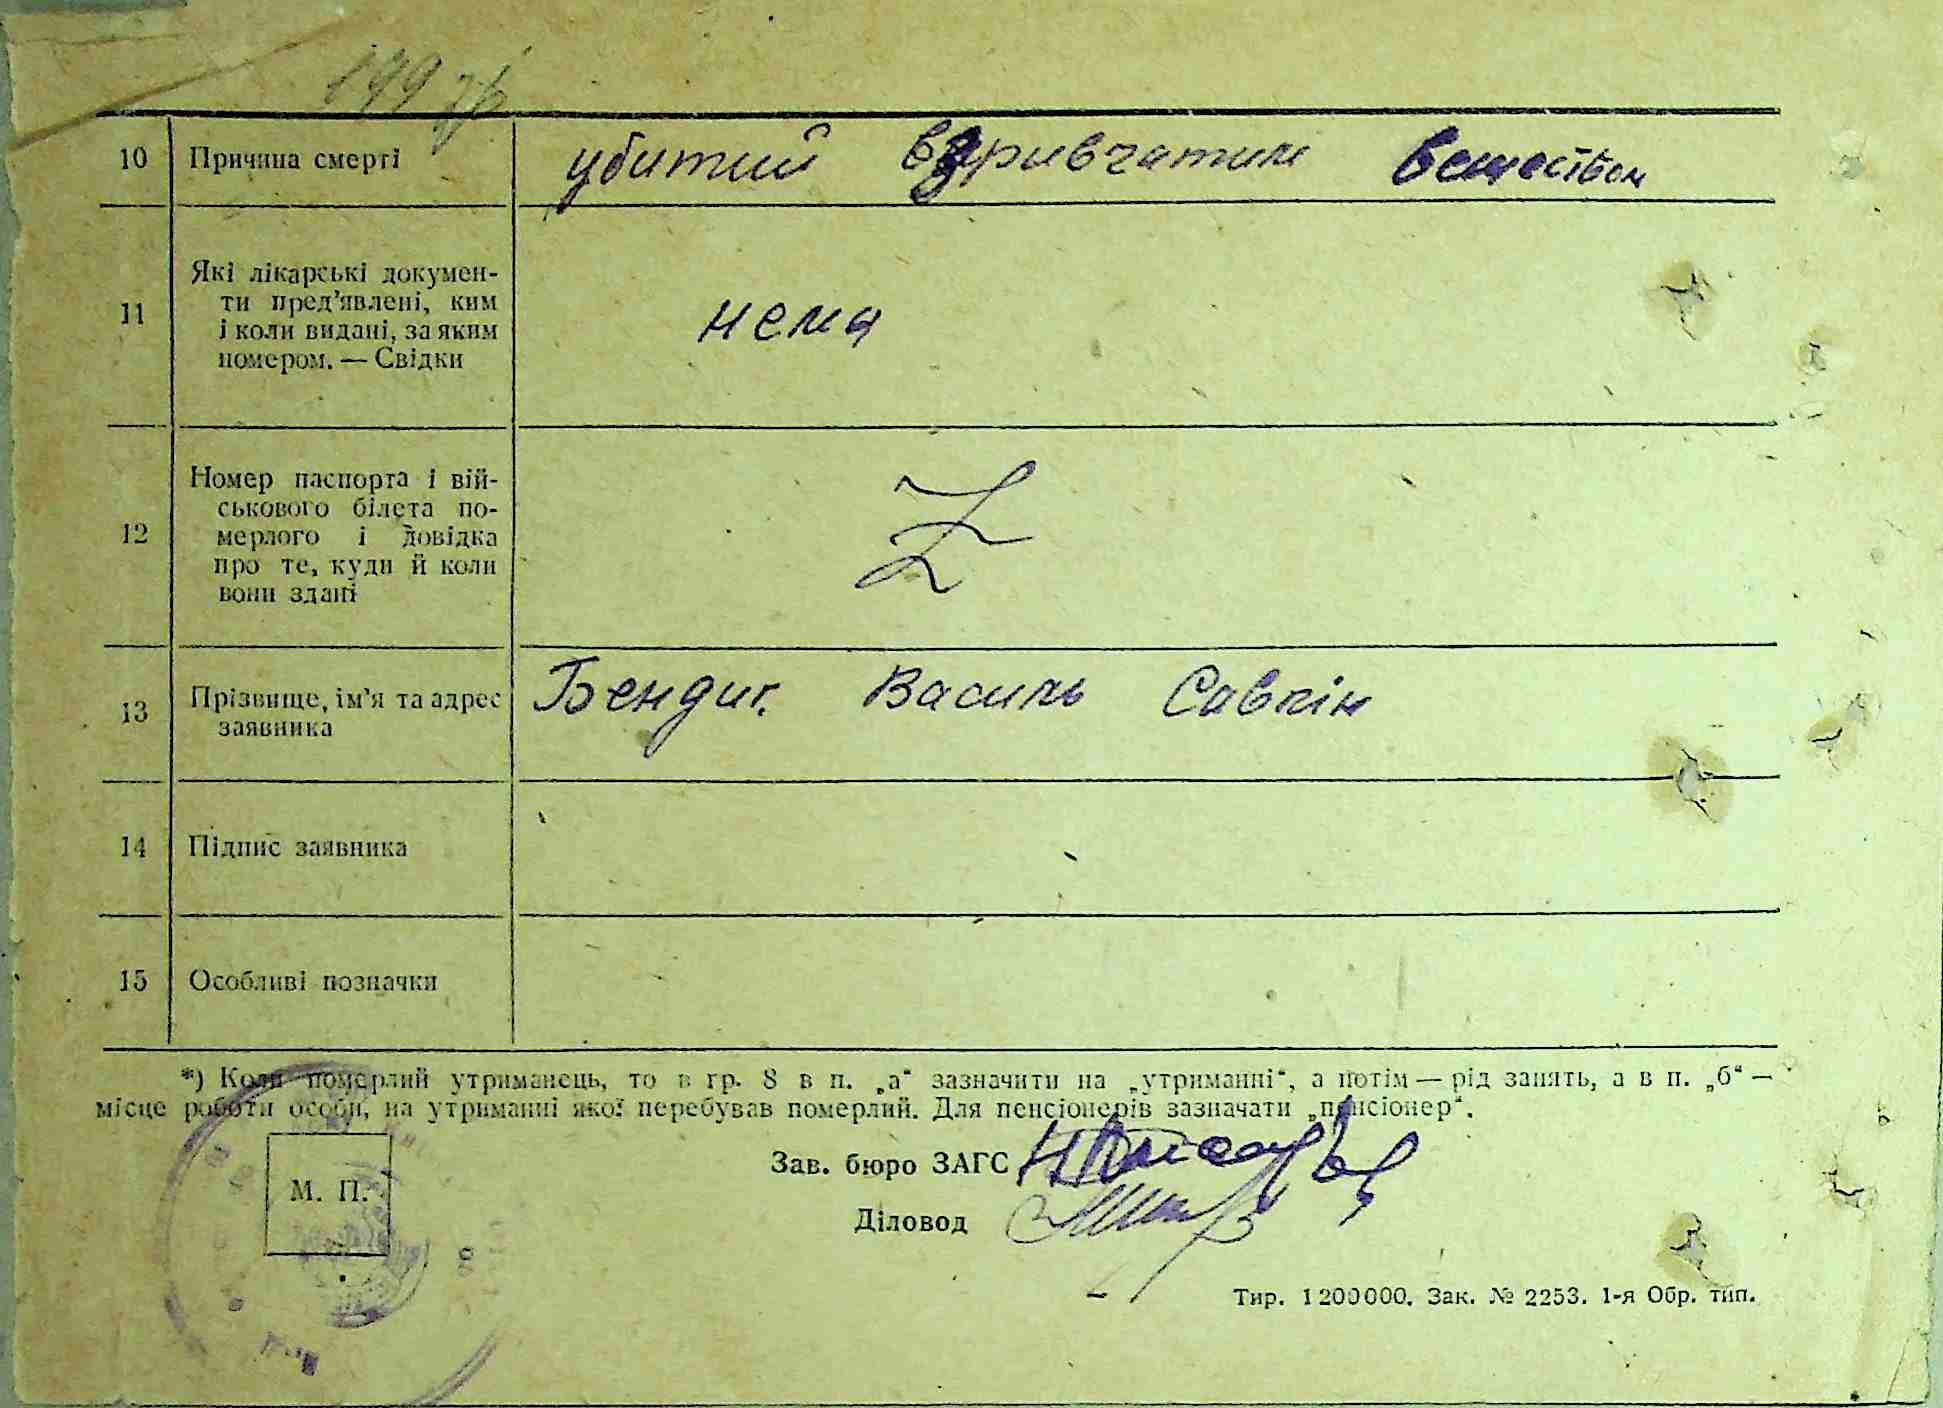 149 зв
10 Причина смерті убитий взривчатим веществом
11 Які лікарські докумен-
ти пред'явлені, ким
і коли видані, за яким
номером. — Свідки
нема
12 Номер паспорта і вій-
ськового білета по-
мерлого і довідка
про те, куди й коли
вони здані
Z
13 Прізвище, ім'я та адрес
заявника
Бендиг. Василь Савкін
14 Підпис заявника
15 Особливі позначки
*) Коли померлий утриманець, то в гр. 8 в п. „а“ зазначити на „утриманні“, а потім — рід занять, а в п. „б“ —
місце роботи особи, на утриманні якої перебував померлий. Для пенсіонерів зазначати „пенсіонер“.
Зав. бюро ЗАГС
М. П.
Діловод
Тир. 1200000. Зак. № 2253. 1-я Обр. тип.